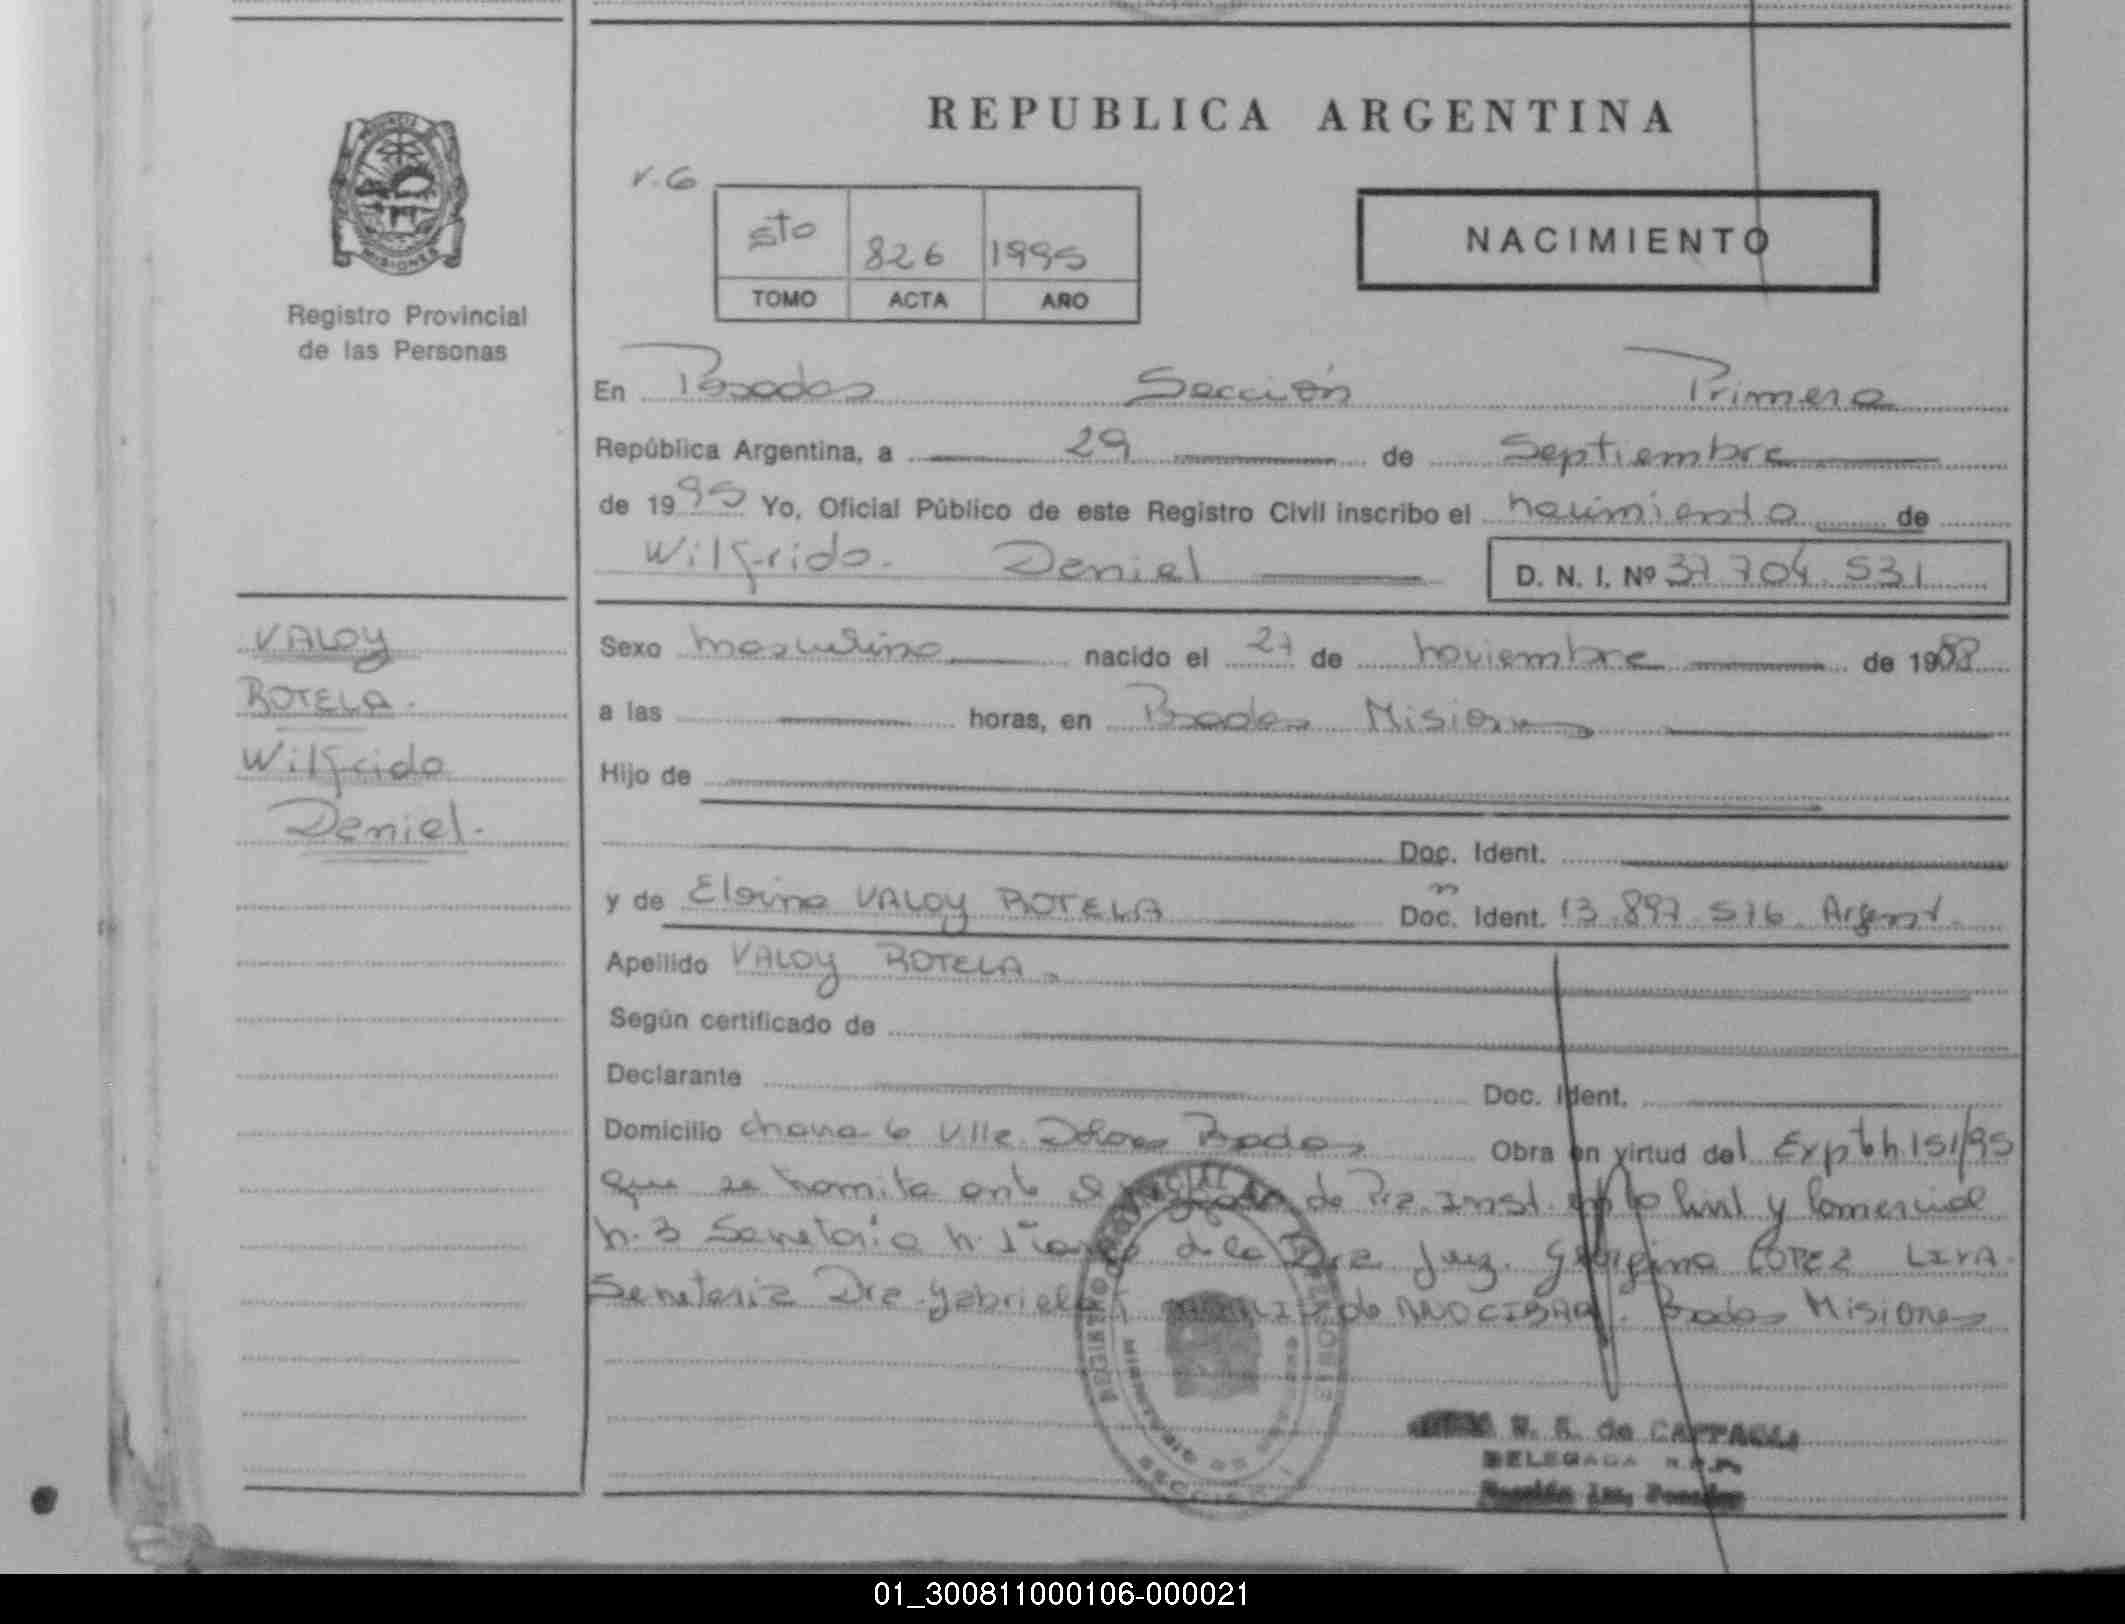 REPUBLICA ARGENTINA
PROVINCIA
MISIONES
Registro Provincial
de las Personas
r.6
5to 826 1995
TOMO ACTA AÑO
NACIMIENTO
En Posadas Sección Primera
República Argentina, a 29 de Septiembre
de 1995 Yo, Oficial Público de este Registro Civil inscribo el nacimiento de
Wilfrido. Daniel
D. N. I. Nº 37 704 531
VALOY
ROTELA.
Wilfrido
Daniel.
Sexo masculino nacido el 27 de noviembre de 19
a las horas, en Posadas Misiones
Hijo de
Doc. Ident.
y de VALOY ROTELA Doc. Ident. 13.897.576 Argent.
Apellido VALOY ROTELA.
Según certificado de
Declarante Doc. Ident.
Domicilio chacra 6 Villa Dolores Posadas Obra en virtud del 151/95
que se tramita ante el Juzgado de Pra. Inst. en lo Civil y Comercial
n. 3 Secretaria n. 1 a cargo de la Dra Juez. Georgina LOPEZ
Secretaria Dra. Gabriela de Posadas Misiones
N. R. de
DELEGADA R.P.P.
Sección 1ra. Posadas
01_300811000106-000021